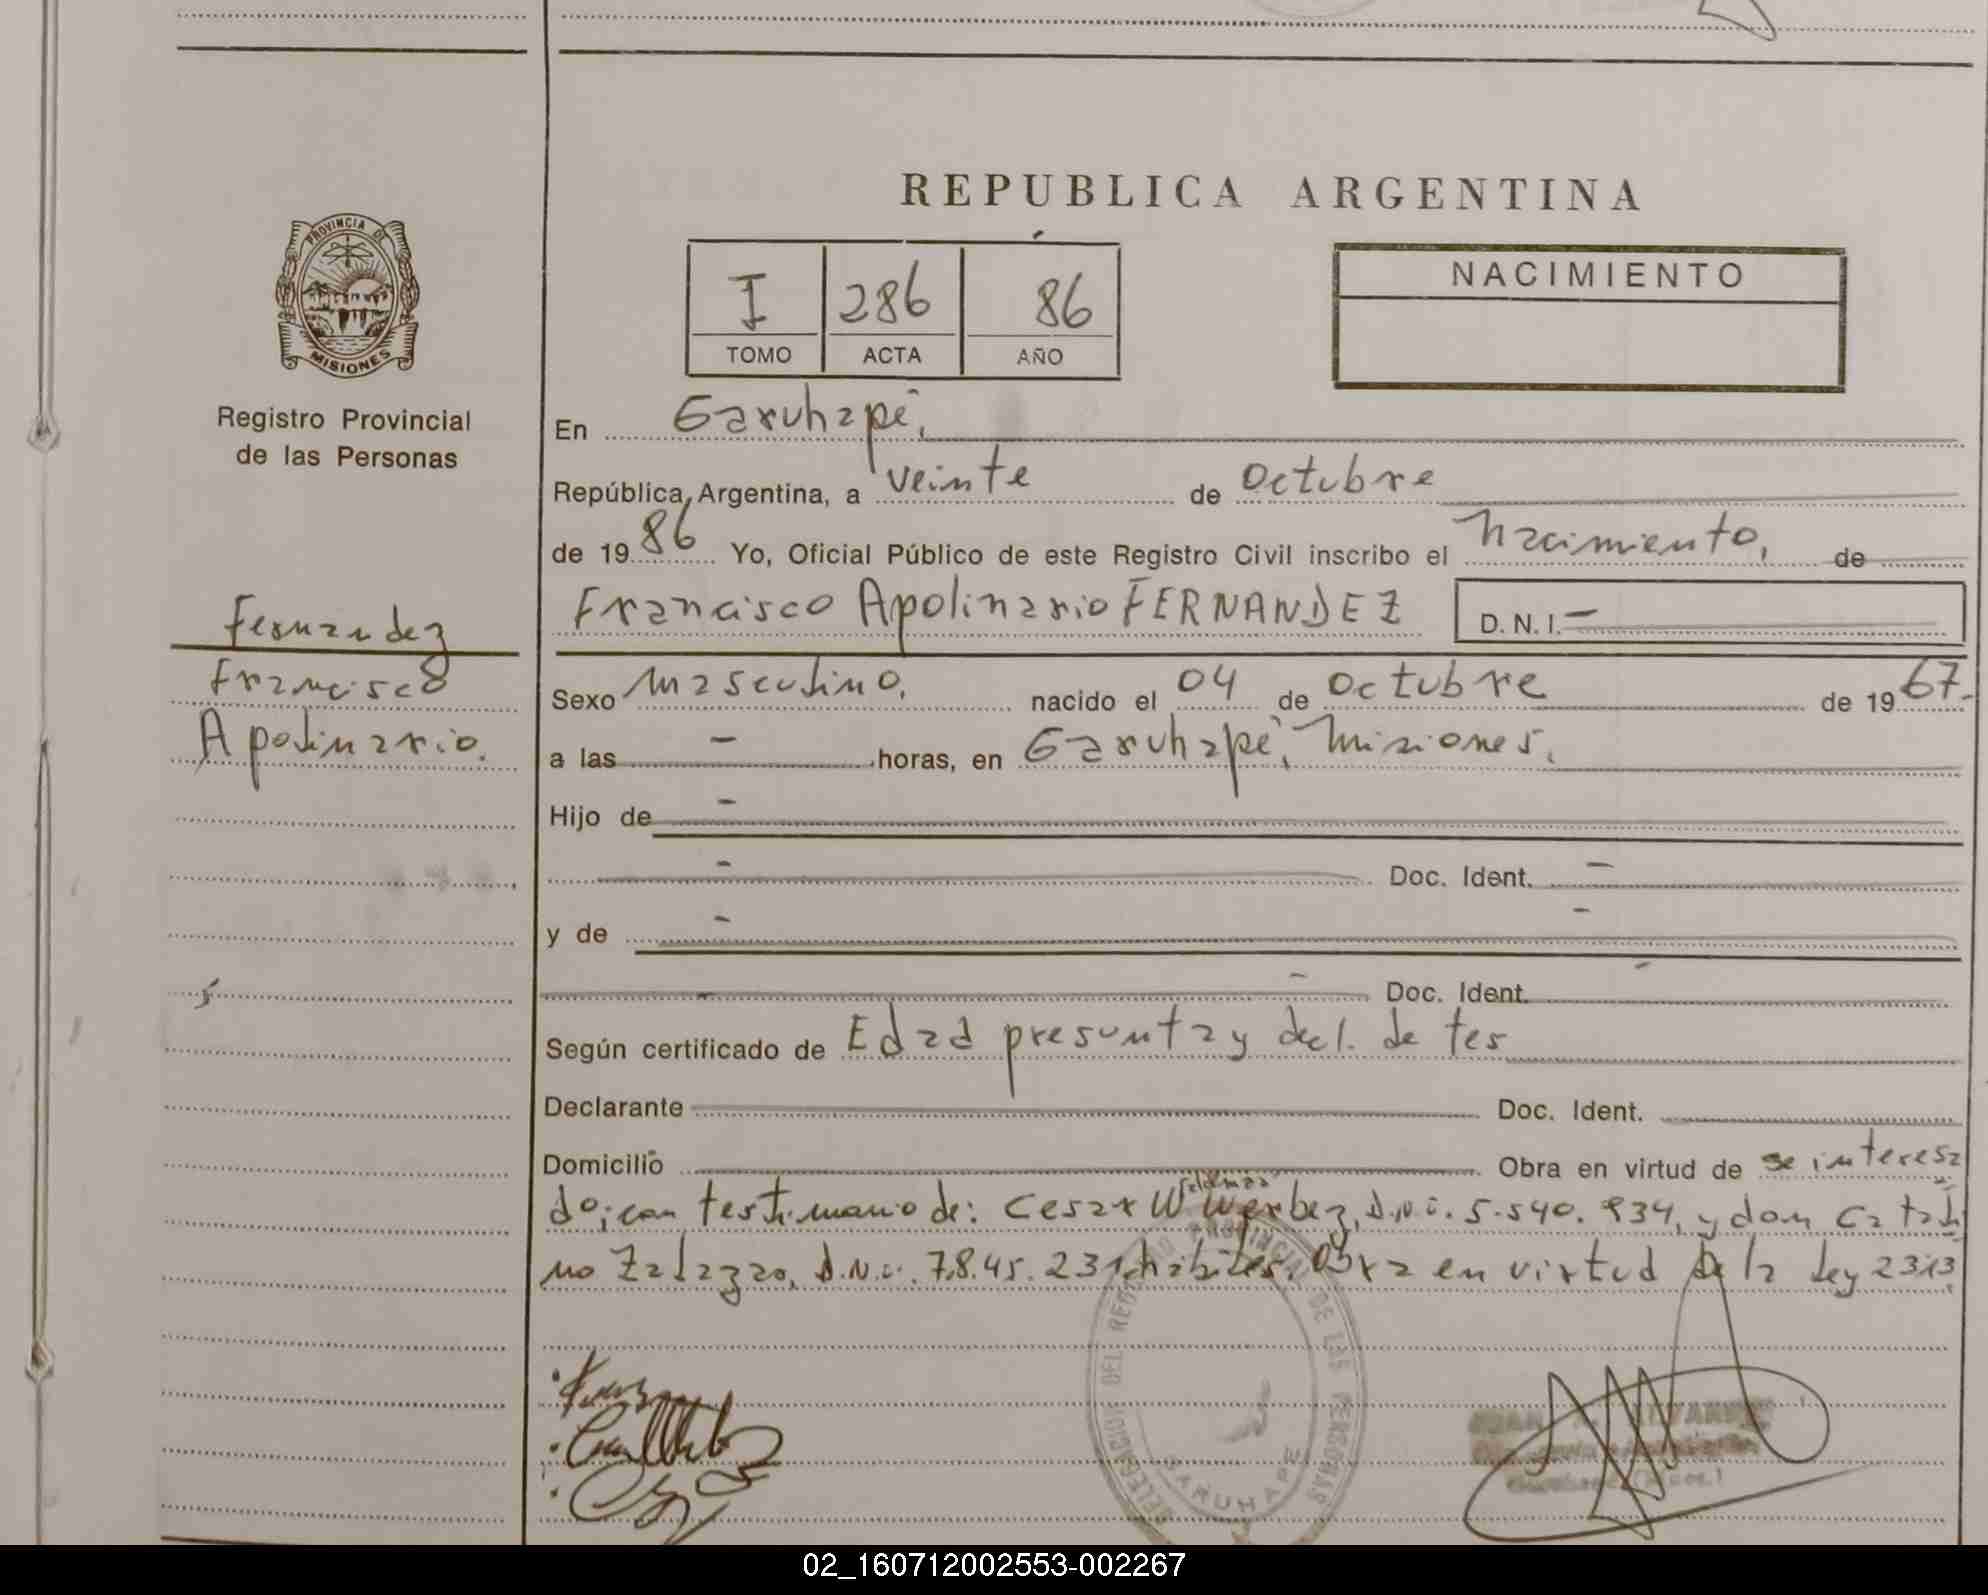 REPUBLICA ARGENTINA
PROVINCIA DE
MISIONES
Registro Provincial
de las Personas
I 286 86
TOMO ACTA AÑO
NACIMIENTO
En Garuhapé,
República Argentina, a veinte de Octubre
de 1986 Yo, Oficial Público de este Registro Civil inscribo el Nacimiento, de
Fernandez
Francisco
Apolinario.
Francisco Apolinario FERNANDEZ D. N. I. —
Sexo masculino. nacido el 04 de octubre de 1967.
a las — horas, en Garuhapé, Misiones.
Hijo de —
— Doc. Ident. —
y de —
— Doc. Ident.
Según certificado de Edad presunta y decl. de tes
Declarante Doc. Ident.
Domicilio Obra en virtud de se interesa
do; con testimonio de: Cesar W. D.N.I. 5.540.934, y don Catali
no Zalazar, D.N.I. 7.8.45.231 hábiles. Obra en virtud De la Ley
DELEGACION DEL REGISTRO PROVINCIAL DE LAS PERSONAS
GARUHAPE
JUAN ALVAREZ
02_160712002553-002267